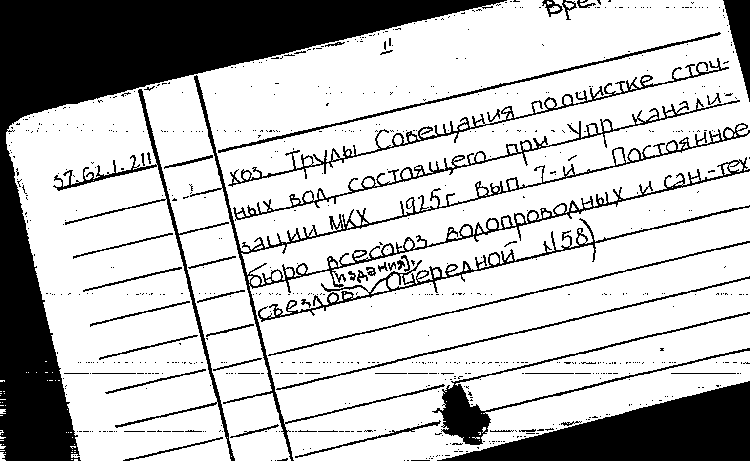 II
37.62.1.211
хоз. Труды Совещания поочистке сточ-
ных вод, состоящего при Упр канали-
зации МКХ 1925г Вып. 7-й. Постоянное
бюро всесоюз водопроводных и сан.-тех
[издания],
съездов. Очередной №58)